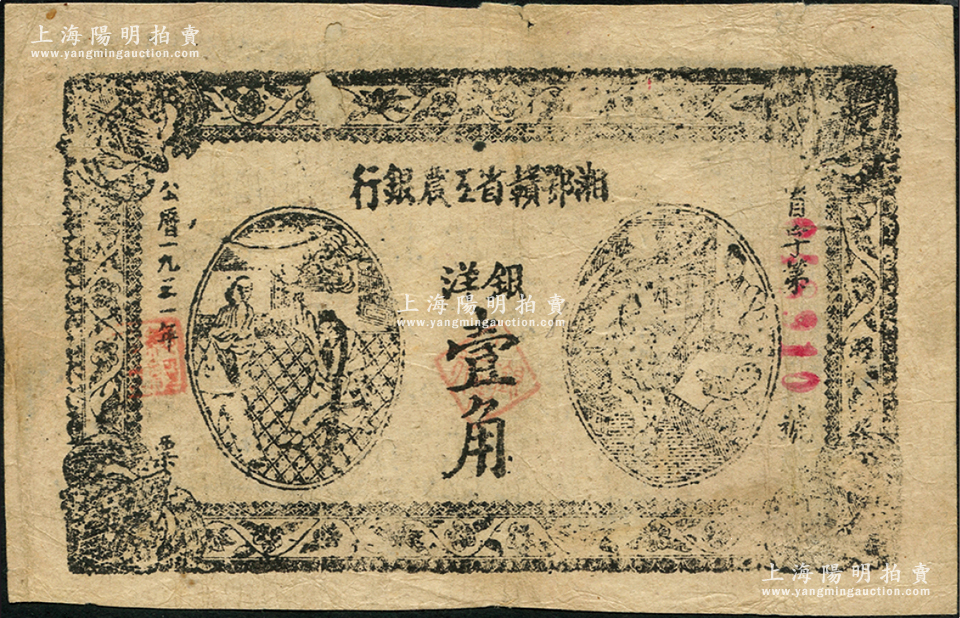 上海陽明拍賣
www.yangmingauction.com
湘鄂贛省工農銀行
銀洋
壹角
字第
號
公曆一九三一年
票
上海陽明拍賣
www.yangmingauction.com
上海陽明拍賣
www.yangmingauction.com